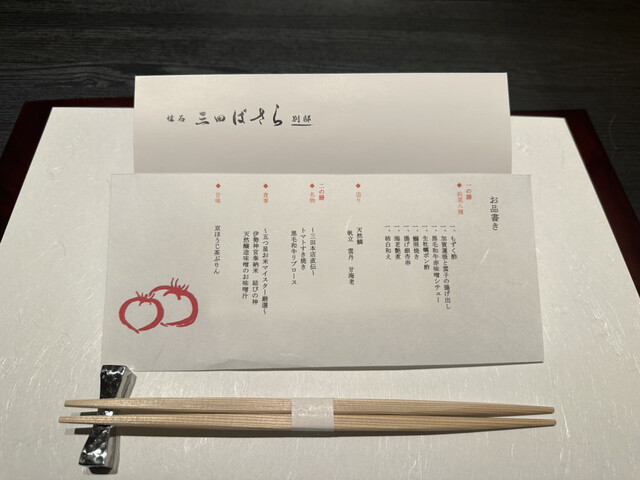 懐石 三田ばさら 別邸
お品書き
一の膳
◆前菜八種
一、もずく酢
一、加賀蓮根と雲子の揚げ出し
一、黒毛和牛赤味噌シチュー
一、生牡蠣ポン酢
一、鰤照焼き
一、揚げ銀杏串
一、海老艶煮
一、柿白和え
◆造り
天然鯛
帆立 雲丹 甘海老
二の膳
◆名物
〜三田本店直伝〜
トマトすき焼き
黒毛和牛リブロース
◆食事
〜五つ星お米マイスター厳選〜
伊勢神宮奉納米 結びの神
天然醸造味噌のお味噌汁
◆甘味
京ほうじ茶ぷりん